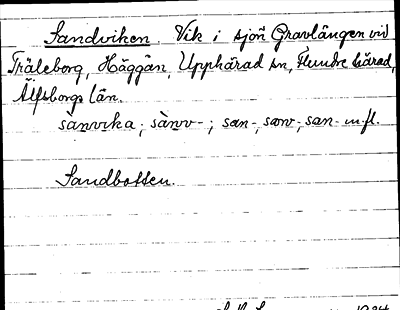 Sandviken. Vik i sjön Gravlången vid
Träleborg, Häggån, Upphärad sn, Flundre härad,
Älfsborgs län.
sànvika; sànv-; san-, sanv-, san- m fl.
Sandbotten.
1924